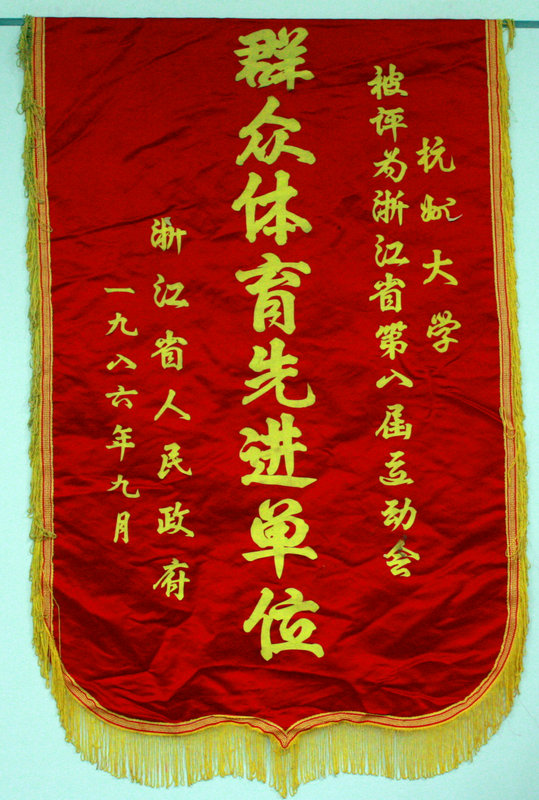 杭州大学
被评为浙江省第八届运动会
群众体育先进单位
浙江省人民政府
一九八六年九月